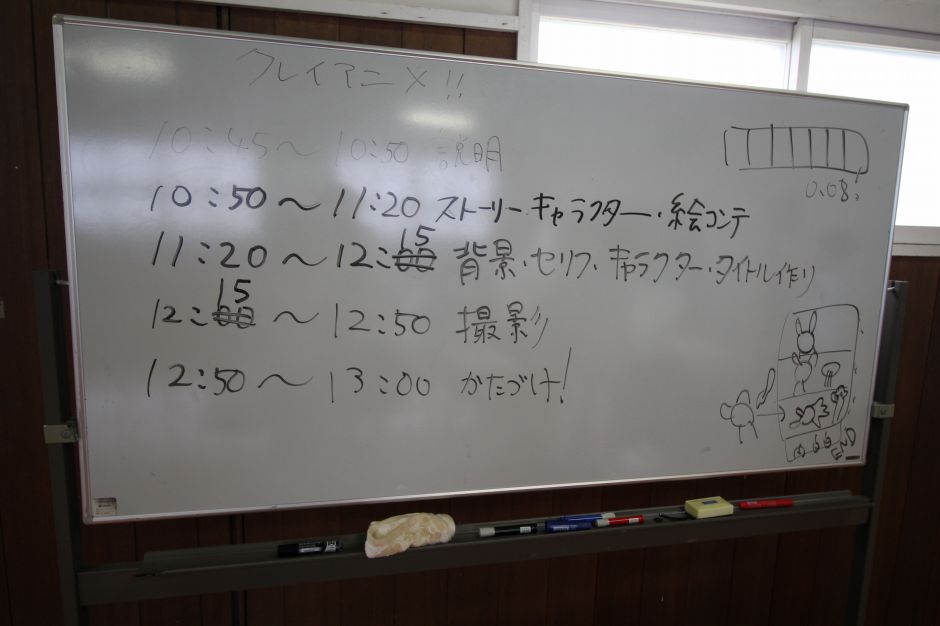 クレイアニメ!!
10:45〜10:50 説明
10:50〜11:20 ストーリー キャラクター・絵コンテ
11:20〜12:15 背景・セリフ・キャラクター・タイトル作り
12:15〜12:50 撮影
12:50〜13:00 かたづけ!
0.08
END